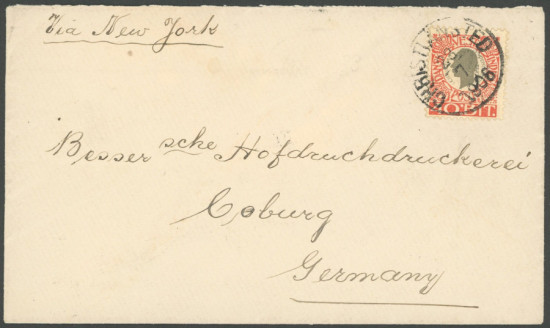 Via New York
CHRISTIANSTED
7
1908
BIT.
Besser sche Hofdruchdruckerei
Coburg
Germany